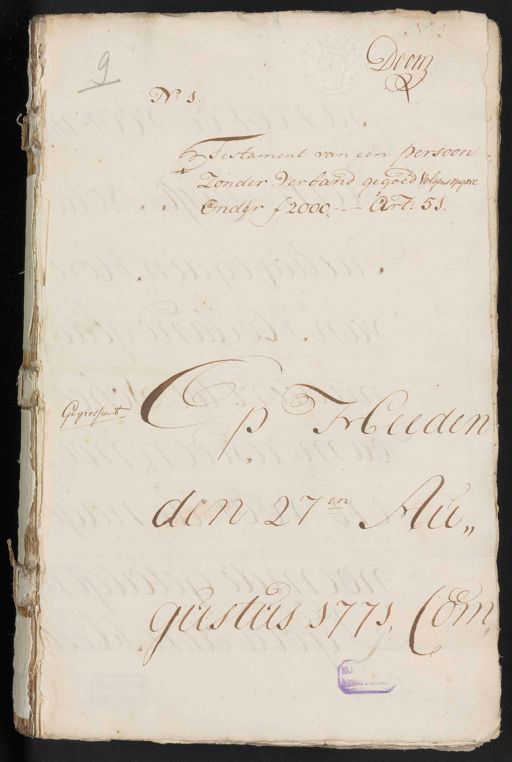 9
Doom
No 1.
Testament van een persoon
Zonder Verband gegoed Volgens
Onder f 2000,-,- Art: 51.
Gegrosseert
Op Heeden
den 27en Au„
gustus 1771, Com„